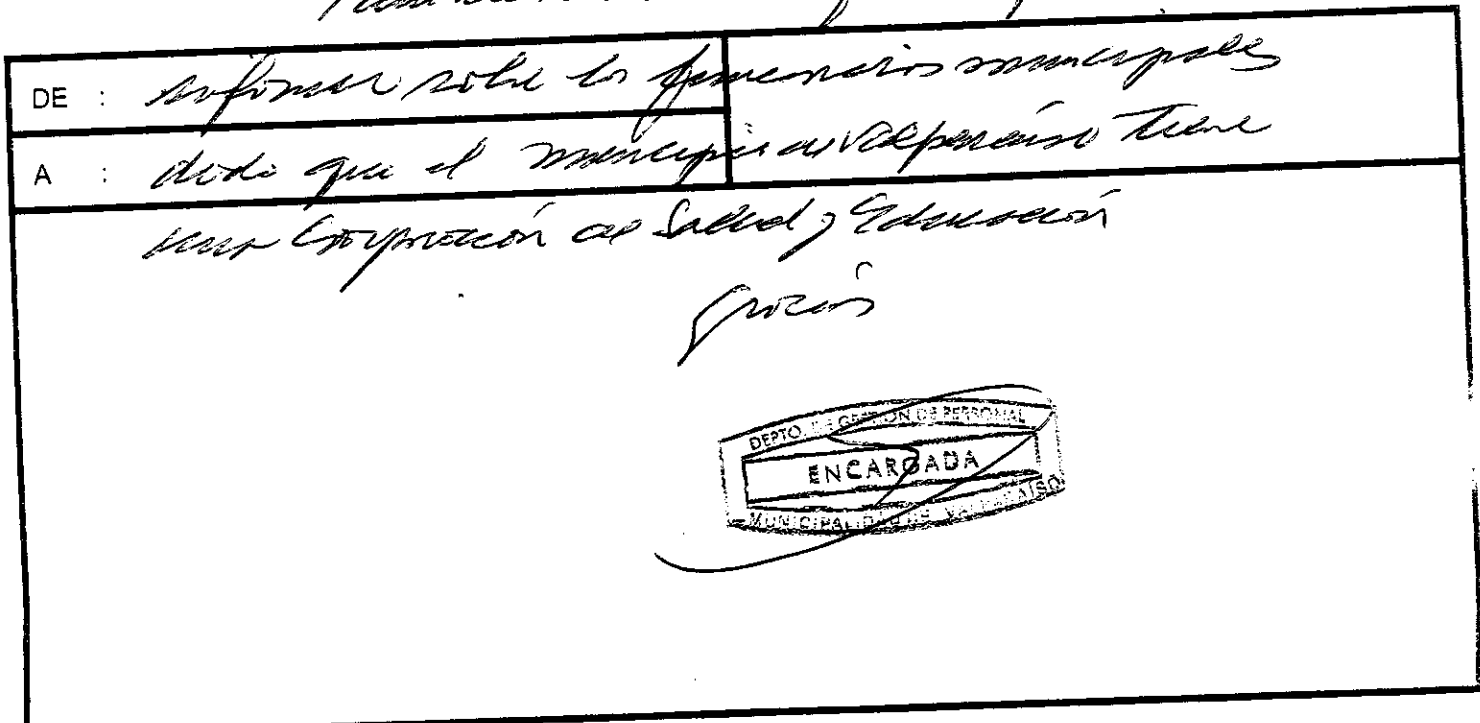 DE : informar sobre los funcionarios municipales
A : dado que el municipio de Valparaíso tiene
una Corporación de Salud y Educación
Gracias
DEPTO. DE GESTION DE PERSONAL
ENCARGADA
MUNICIPALIDAD DE VALPARAISO